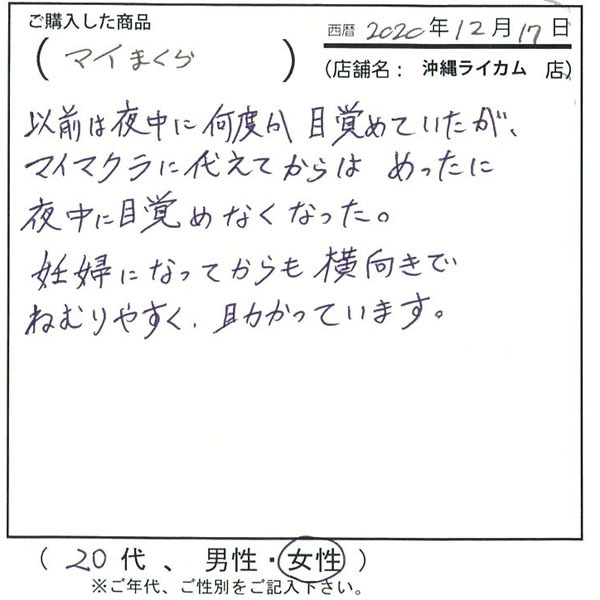 ご購入した商品
(マイまくら)
西暦 2020年12月17日
(店舗名： 沖縄ライカム 店)
以前は夜中に何度か目覚めていたが、
マイマクラに代えてからは めったに
夜中に目覚めなくなった。
妊婦になってからも横向きで
ねむりやすく、助かっています。
( 20代 、 男性・女性 )
※ご年代、ご性別をご記入下さい。